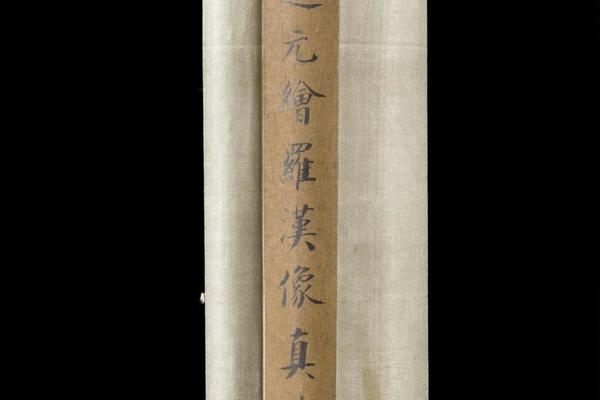 元繪羅漢像真